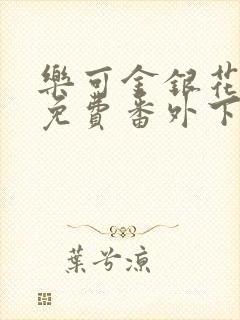 樂可金銀花
免費番外下
葉兮涼